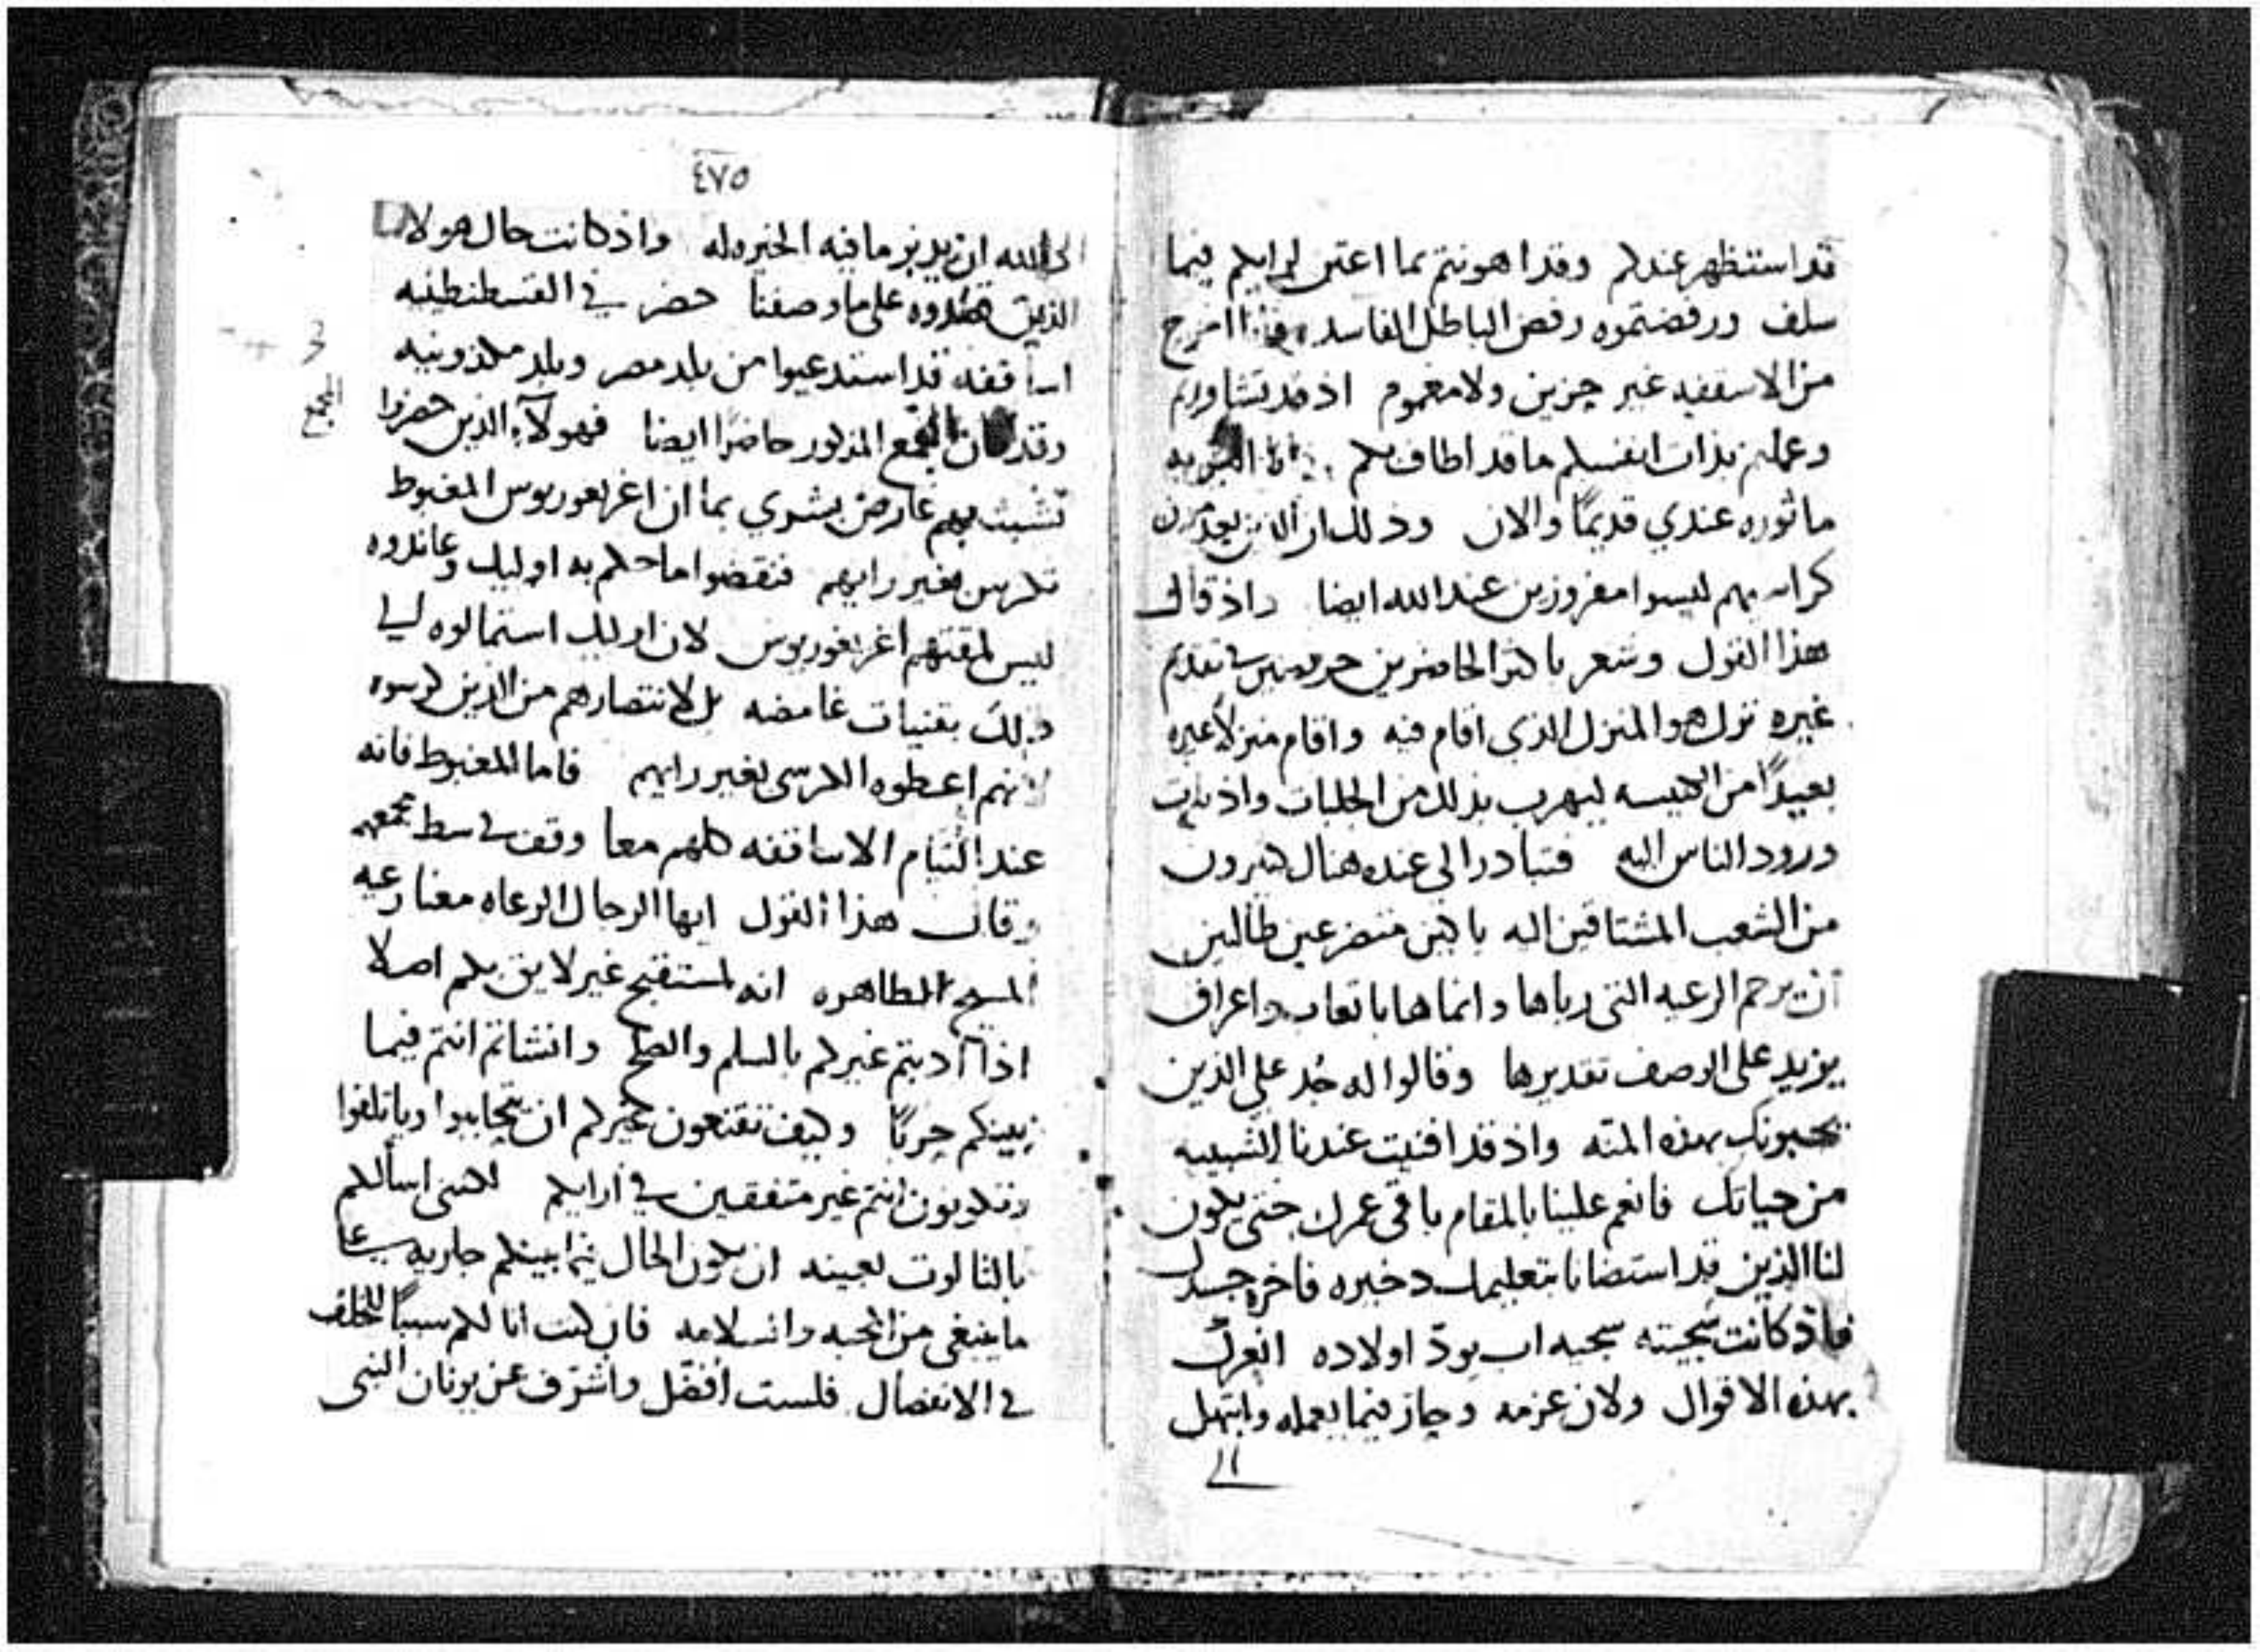 قد استظهر عندكم وقد اهونتم بما اعتن لرايكم فيما
سلف ورفضتموه رفض الباطل الفاسد امرج
من الاسقفيه غير حزين ولا مغموم اذ قد تشاورتم
وعملتم بذات انفسكم ما قد اطاف بكم
ماثوره عندي قديمًا والان وذلك ان الذين يعدمون
كراسيهم ليسوا مفروزين عند الله ايضا واذ قال
هذا القول وشعر باكثر الحاضرين حريصين في تقديم
غيره ترك هو المنزل الذي اقام فيه واقام منزلاً غيره
بعيدًا من الكنيسه ليهرب بذلك من الجلبات واذيات
ورود الناس اليه فتبادر الى عنده هناك كثيرون
من الشعب المشتاقين اليه باكين متضرعين طالبين
ان يرحم الرعيه التي رباها وانماها باتعاب واعراق
يزيد على الوصف تقديرها وقالوا له جُد على الذين
يحبونك بهذه المنّه واذ قد افنيت عندنا الشبيبه
من حياتك فانعم علينا بالمقام باقي عمرك حتى يكون
لنا الذين قد استضانا بتعليمك دخيره فاخره جسدك
فاذ كانت سجيته سجيه اب يودّ اولاده انعرك
بهذه الاقوال ولان عزمه وحاز فيما يعمله وابتهل
الى
٤٧٥
الى الله ان يدبر ما فيه الخيره له واذ كانت حال هولا
الذين على ما وصفنا حضر في القسطنطينيه
اساقفه قد استدعيوا من بلد مصر وبلد مكدونيه
وقد كان المجمع المذكور حاضرًا ايضا فهولآء الذين حضروا
المجمع
تشبث بهم عارض بشري بما ان اغريغوريوس المغبوط
تكرس بغير رايهم فنقضوا ما حكم به اوليك وعاندوه
ليس لمقتهم اغريغوريوس لان اوليك استمالوه ليلي
ذلك بقنيات غامضه بل لانتصارهم من الذين كرسوه
لانهم اعطوه الكرسي بغير رايهم فاما المغبوط فانه
عند التيام الاساقفه كلهم معا وقف في وسط مجمعهم
وقال هذا القول ايها الرجال الرعاه معنا رعيه
المسيح الطاهره انه لمستقبح غير لايق بكم اصلا
اذا ادبتم غيركم بالسلم والصلح وانشاتم انتم فيما
بينكم حربًا وكيف تقنعون غيركم ان يتحابوا وياتلفوا
وتكونون انتم غير متفقين في ارايكم لكنني اسألكم
بالثالوث بعينه ان يكون الحال فيما بينكم جاريه على
ما ينبغي من المحبه والسلامه فان كنت انا لكم سببًا للخلف
في الانفصال فلست افضّل واشرّف عن يونان النبي